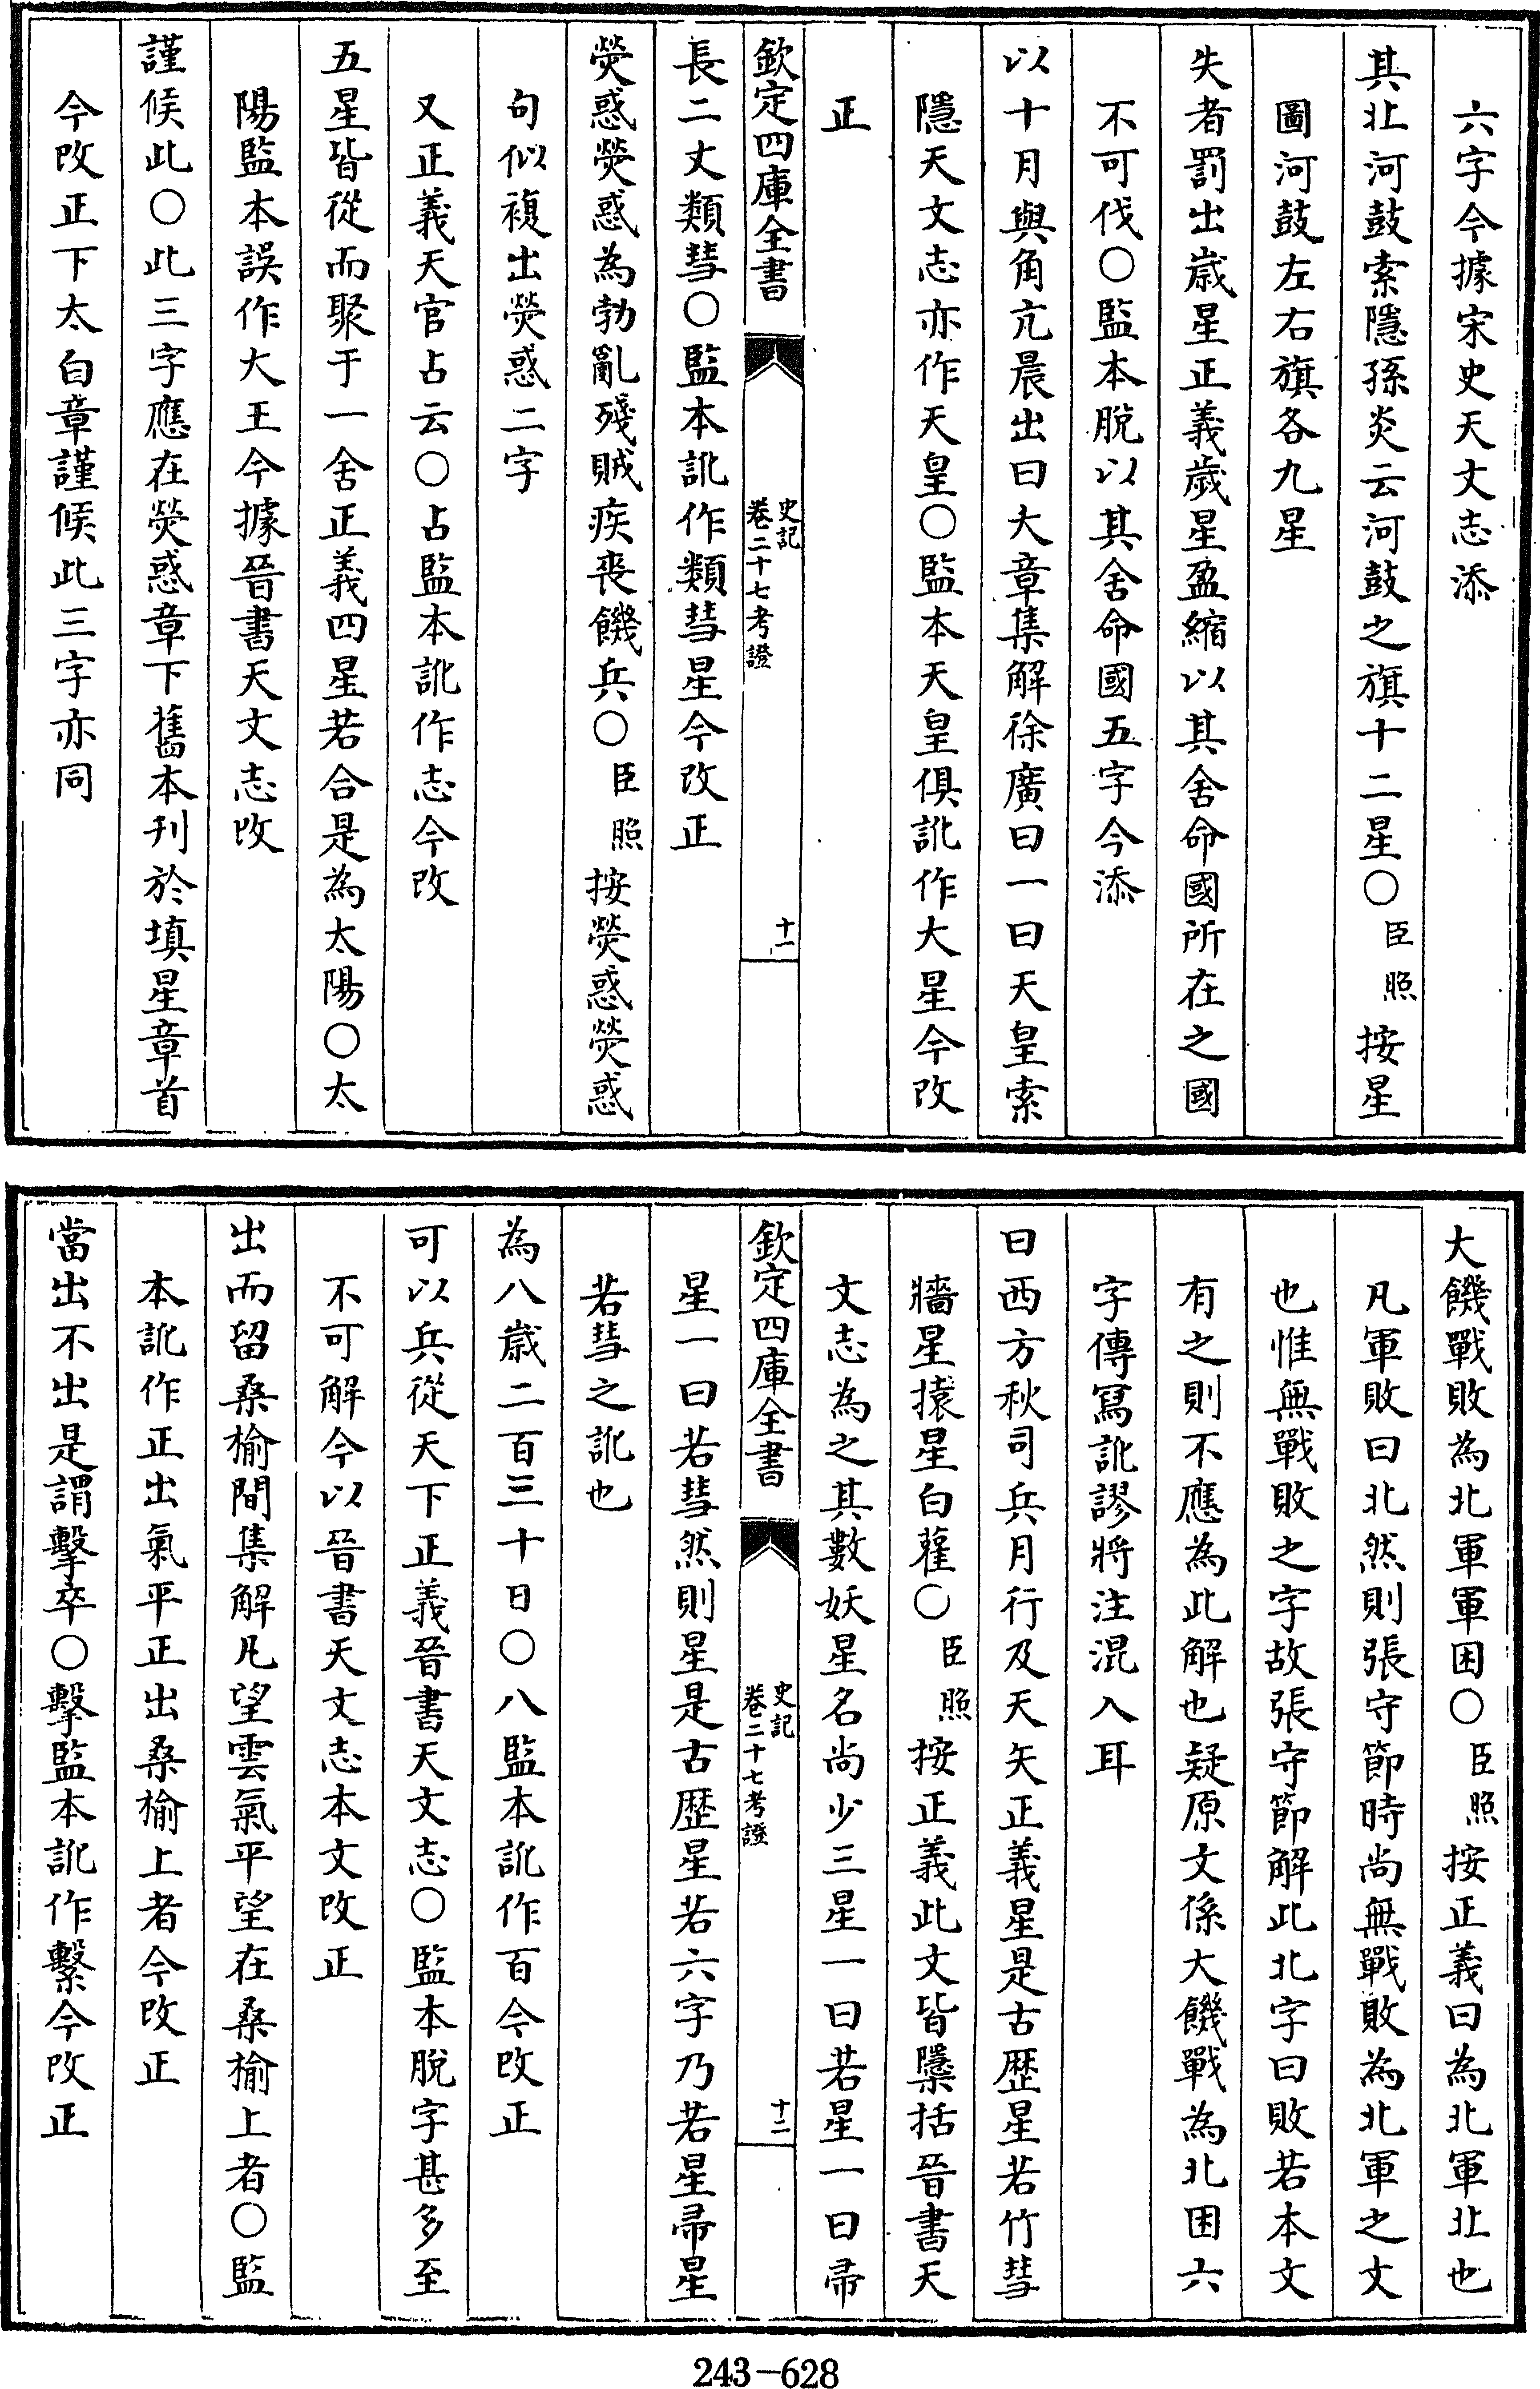 六字今據宋史天文志添
其北河鼓索隱孫炎云河鼓之旗十二星〇臣照按星
圖河鼓左右旗各九星
失者罰出歲星正義歲星盈縮以其舍命國所在之國
不可伐〇監本脫以其舍命國五字今添
以十月與角亢晨出曰大章集解徐廣曰一曰天皇索
隱天文志亦作天皇〇監本天皇俱訛作大星今改
正
欽定四庫全書
史記
卷二十七考證
十一
長二丈類彗〇監本訛作類彗星今改正
熒惑熒惑為勃亂殘賊疾喪饑兵〇臣照按熒惑熒惑
句似複出熒惑二字
又正義天官占云〇占監本訛作志今改
五星皆從而聚于一舍正義四星若合是為太陽〇太
陽監本誤作大王今據晉書天文志改
謹候此〇此三字應在熒惑章下舊本刊於填星章首
今改正下太白章謹候此三字亦同
大饑戰敗為北軍軍困〇臣照按正義曰為北軍北也
凡軍敗曰北然則張守節時尚無戰敗為北軍之文
也惟無戰敗之字故張守節解此北字曰敗若本文
有之則不應為此解也疑原文係大饑戰為北困六
字傳寫訛謬將注混入耳
曰西方秋司兵月行及天矢正義星是古歴星若竹彗
牆星猿星白雚〇臣照按正義此文皆櫽括晉書天
文志為之其數妖星名尚少三星一曰若星一曰帚
星一曰若彗然則星是古歴星若六字乃若星帚星
若彗之訛也
欽定四庫全書
史記
卷二十七考證
十二
為八歲二百三十日〇八監本訛作百今改正
可以兵從天下正義晉書天文志〇監本脫字甚多至
不可解今以晉書天文志本文改正
出而留桑榆間集解凡望雲氣平望在桑榆上者〇監
本訛作正出氣平正出桑榆上者今改正
當出不出是謂擊卒〇擊監本訛作繫今改正
243-628